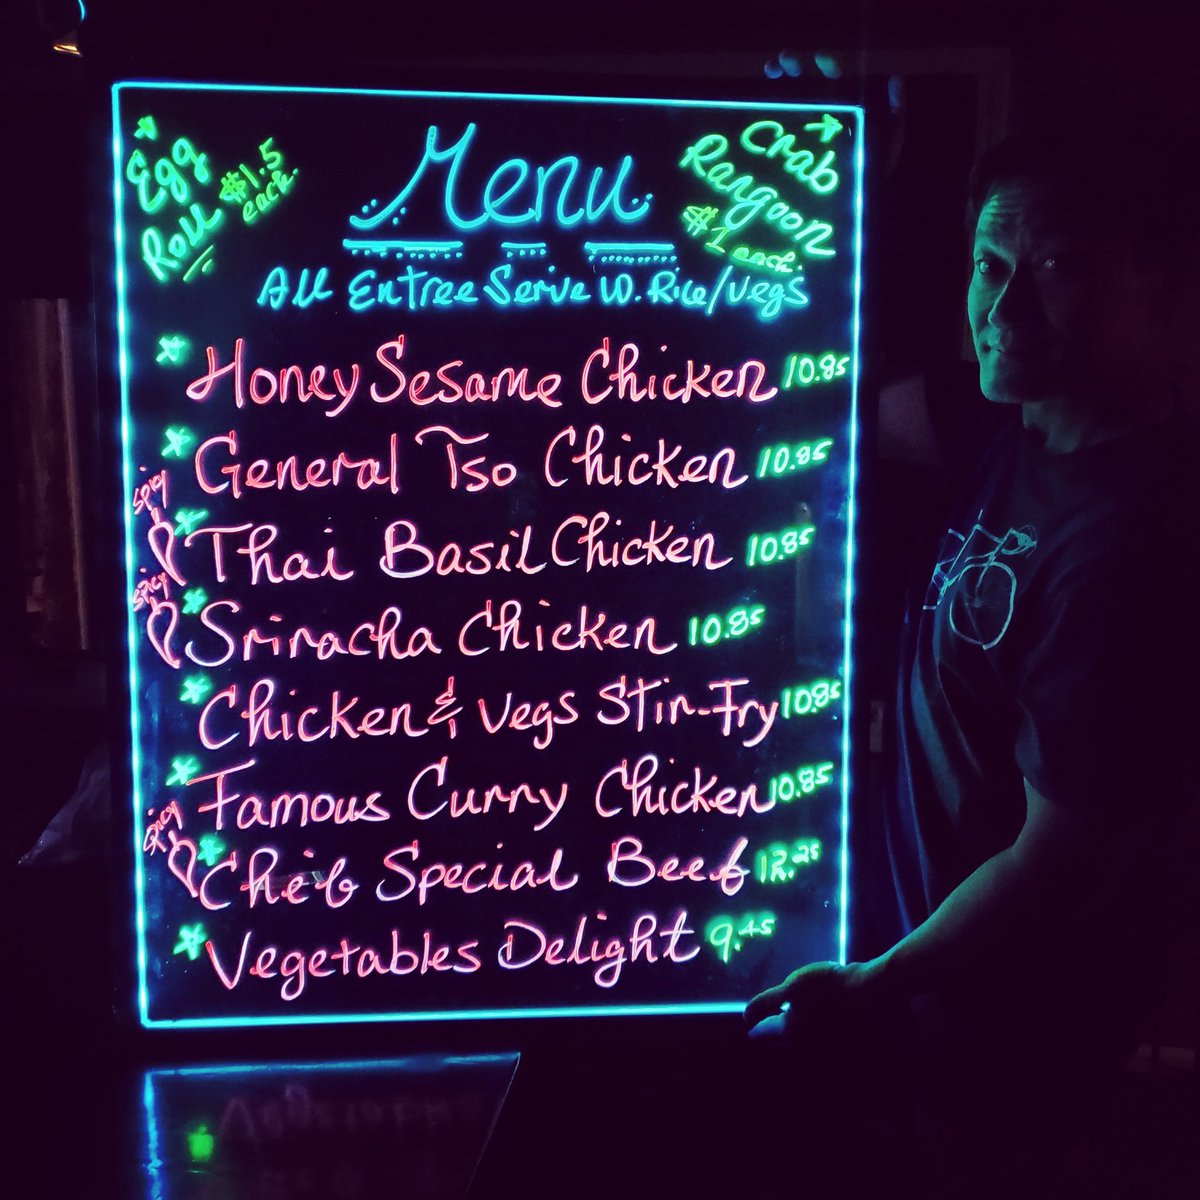 Egg
Roll $1.5
each.
Menu
Crab
Rangoon
$1 each.
All Entree Serve W. Rice/Vegs
Honey Sesame Chicken 10.85
General Tso Chicken 10.85
Spicy
Thai Basil Chicken 10.85
Spicy
Sriracha Chicken 10.85
Chicken & Vegs Stir-Fry 10.85
Famous Curry Chicken 10.85
Spicy
Chef Special Beef 12.25
Vegetables Delight 9.45